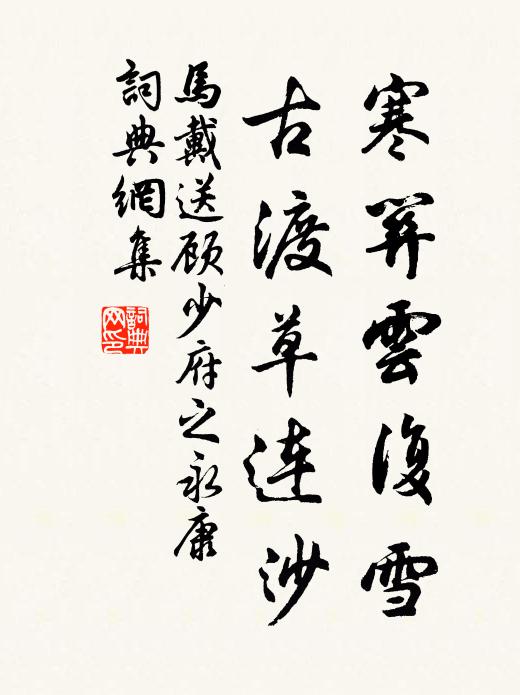 寒關雲復雪
古渡草連沙
馬戴送顾少府之永康
詞典網集
詞典
网印